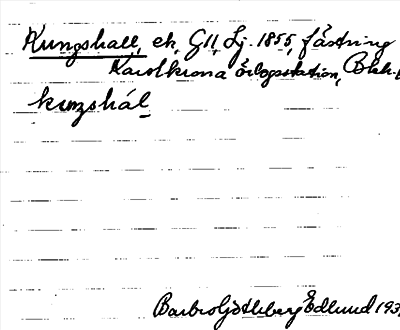 Kungshall, ek, G11, Lj. 1855, fästning
Karolkrona örlogsstation, Blek.
kuŋshál
Barbro Götleberg Edlund 193